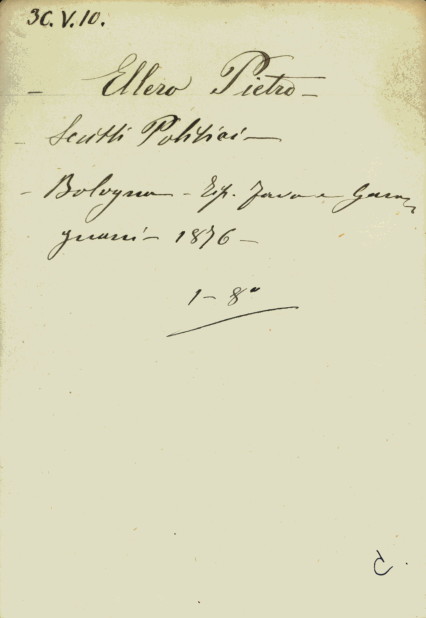 3C.V.10.
- Ellero Pietro -
- Scritti Politici -
- Bologna - Tip. Fava e Gara=
gnani - 1876 -
1 - 8°
C.